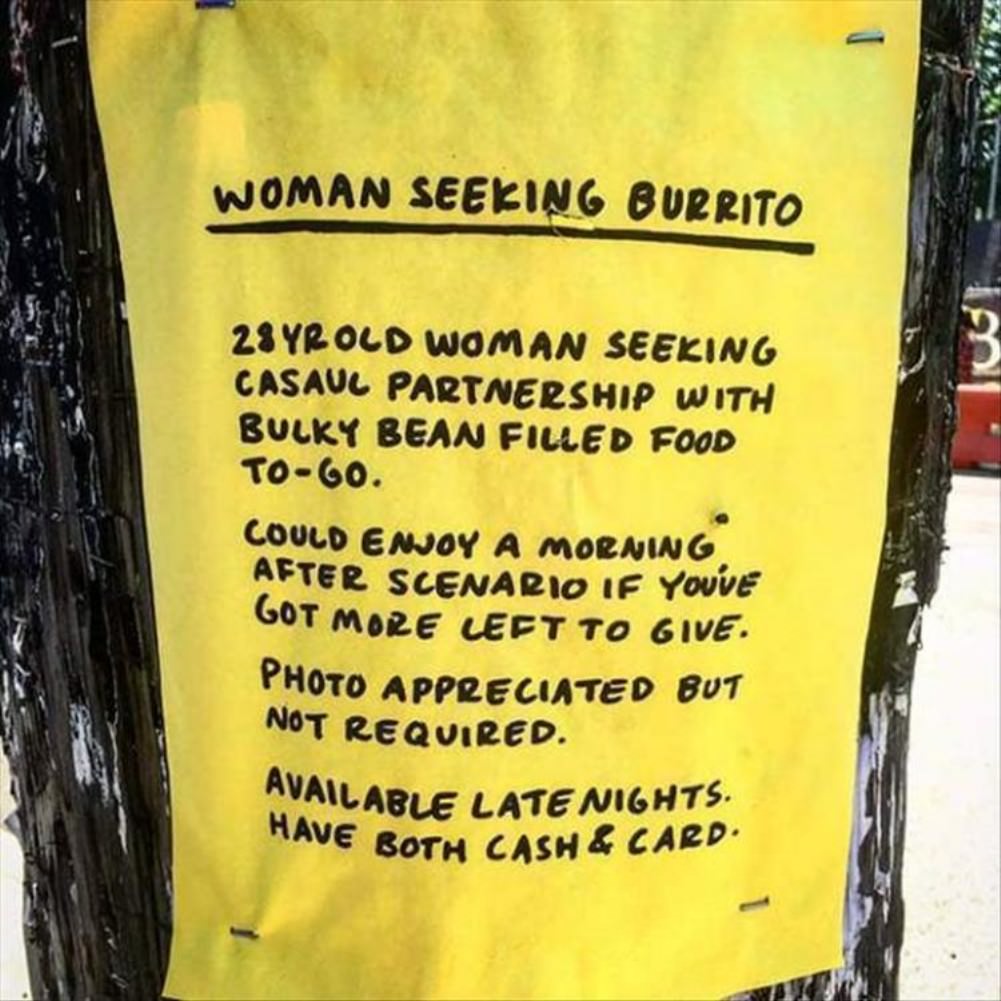 WOMAN SEEKING BURRITO
28 YR OLD WOMAN SEEKING
CASAUL PARTNERSHIP WITH
BULKY BEAN FILLED FOOD
TO-GO.
COULD ENJOY A MORNING
AFTER SCENARIO IF YOU'VE
GOT MORE LEFT TO GIVE.
PHOTO APPRECIATED BUT
NOT REQUIRED.
AVAILABLE LATE NIGHTS.
HAVE BOTH CASH & CARD.
3